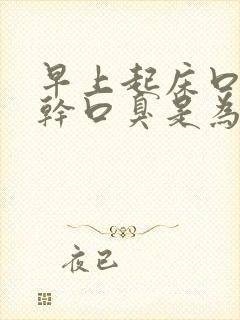 早上起床口
幹口臭是為
夜已